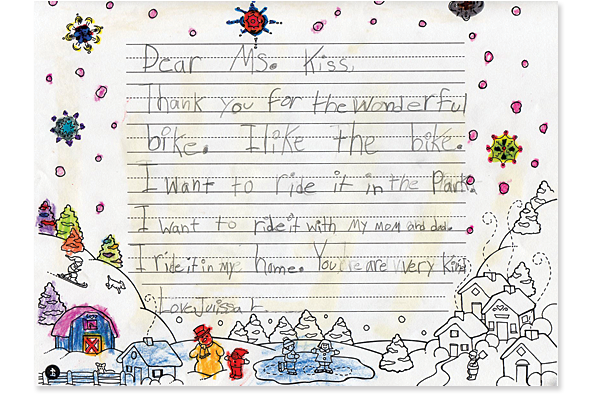 Dear Ms. Kiss,
Thank you for the wonderful
bike. I like the bike.
I want to ride it in the Park.
I want to ride it with my mom and dad.
I ride it in my home. You are very kind.
Love, Juissa L.